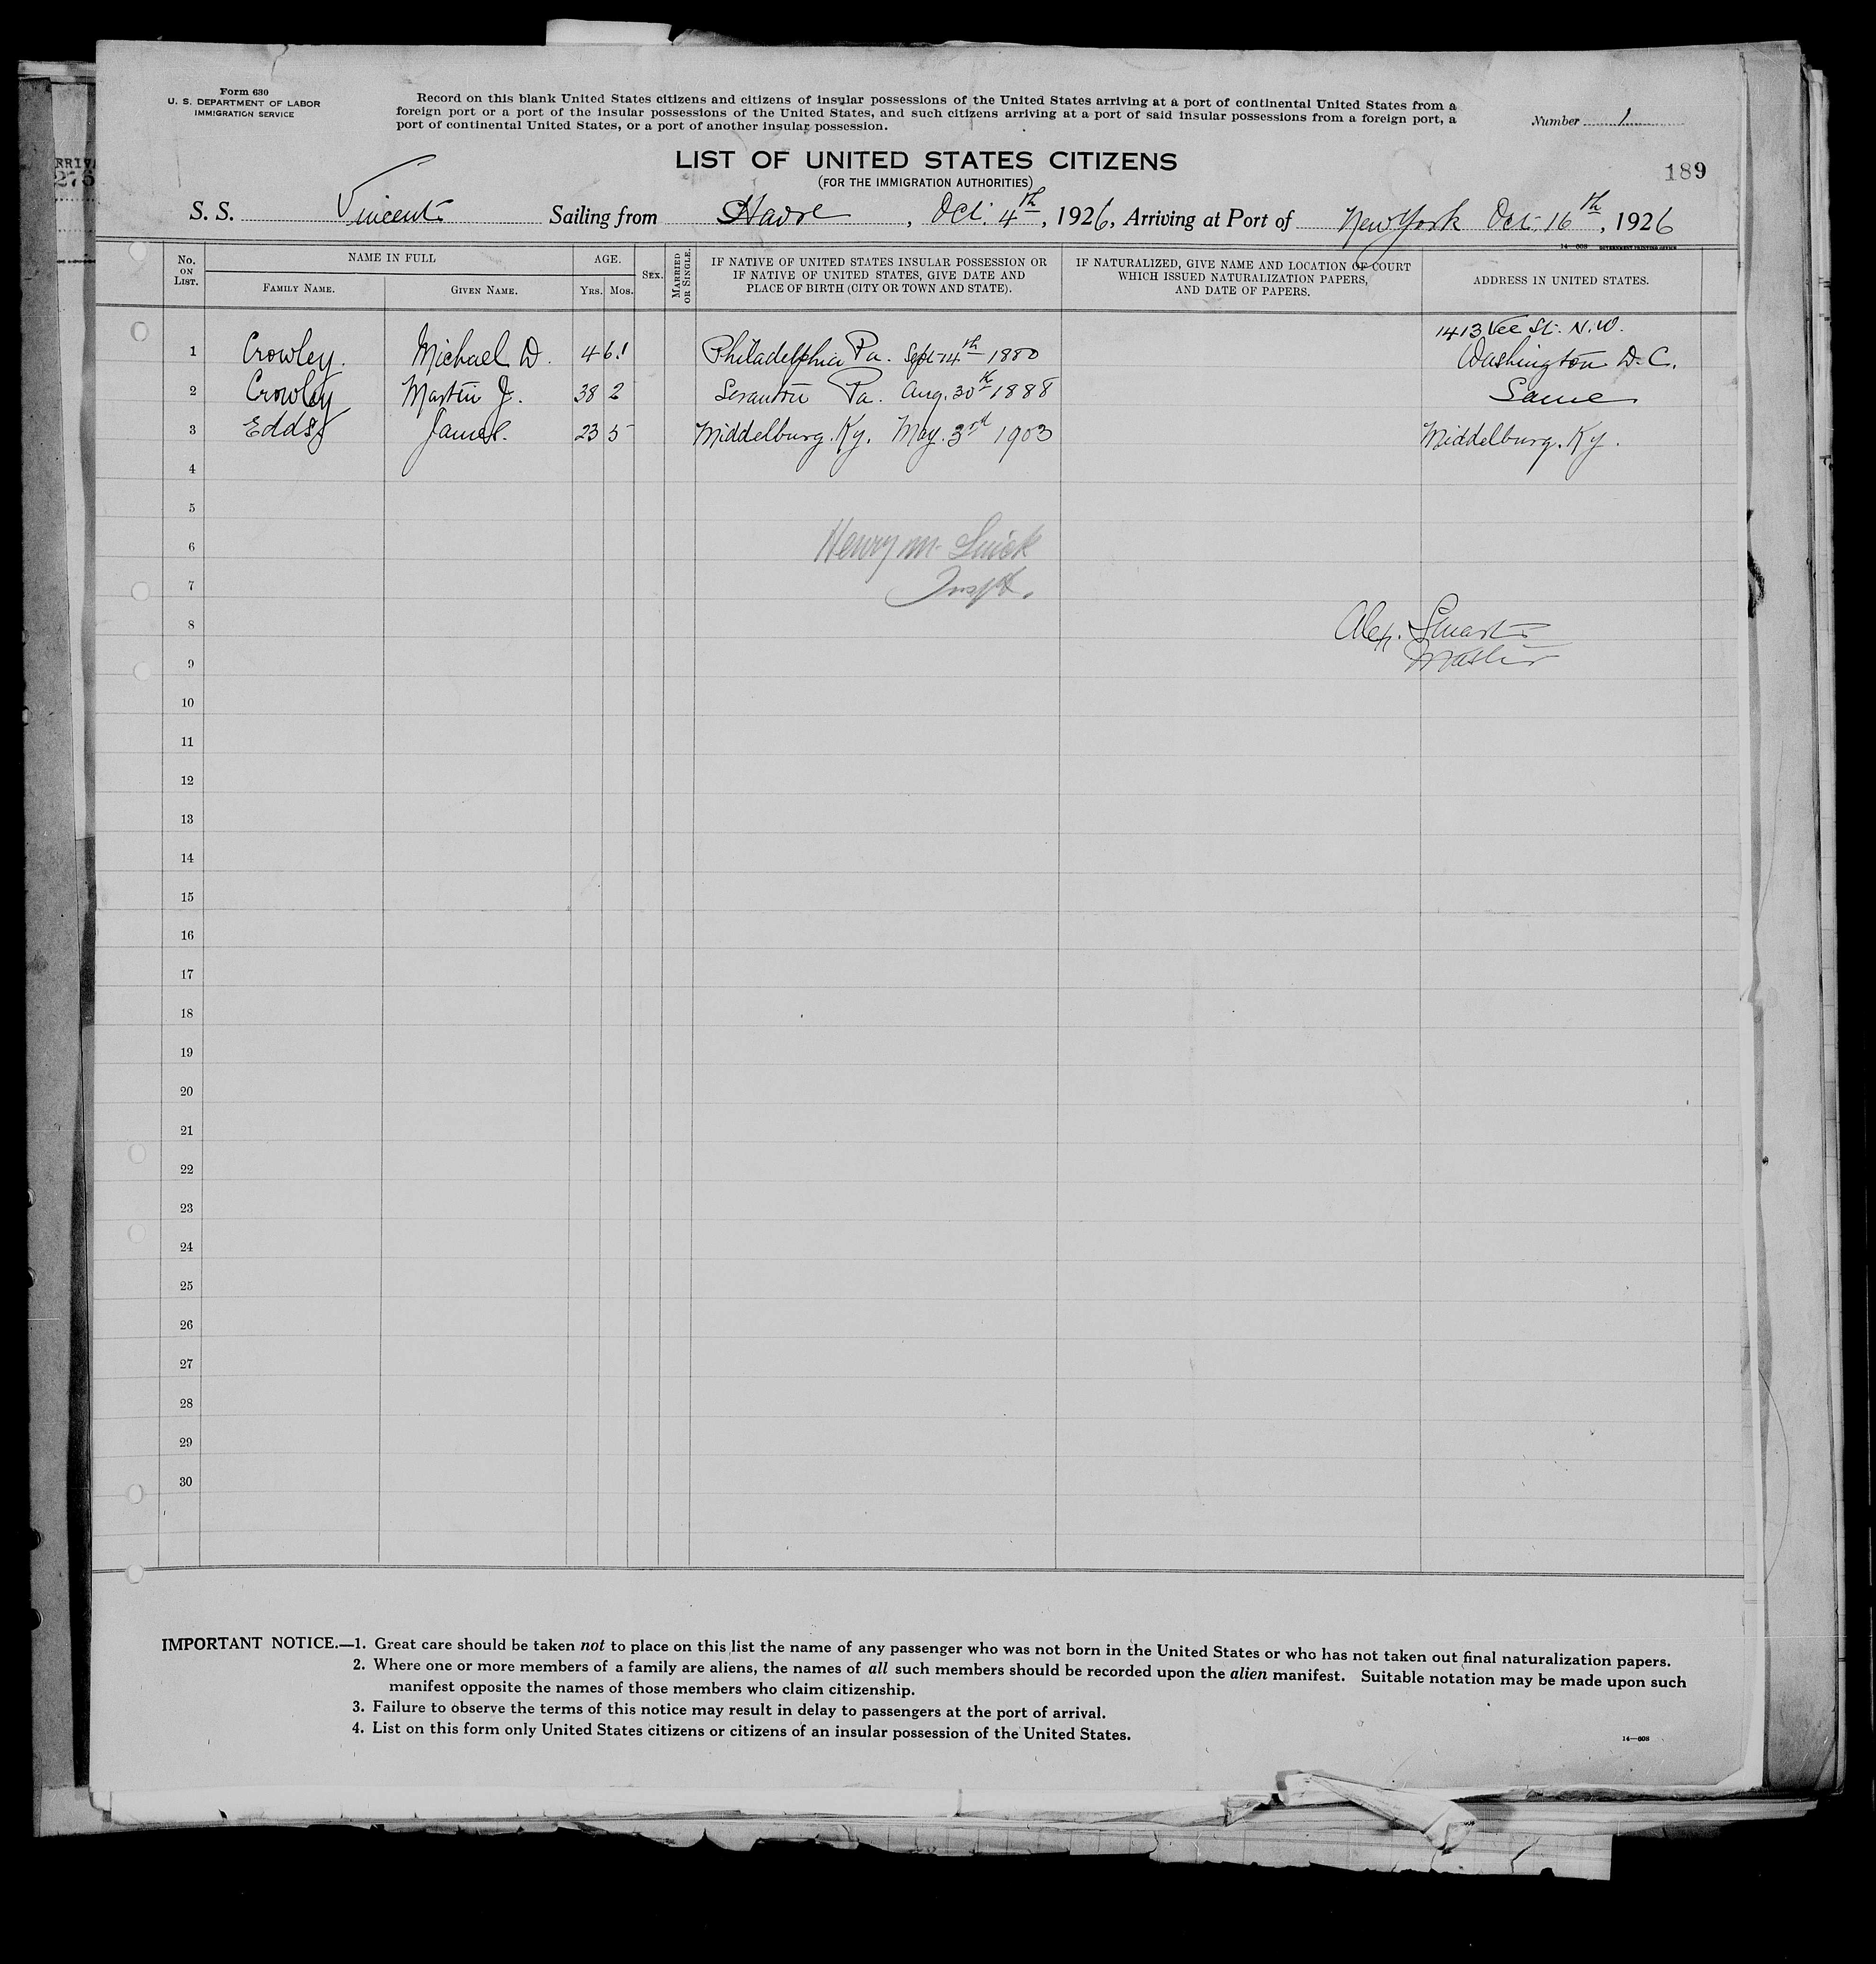 Form 630
U. S. DEPARTMENT OF LABOR
IMMIGRATION SERVICE
Record on this blank United States citizens and citizens of insular possessions of the United States arriving at a port of continental United States from a
foreign port or a port of the insular possessions of the United States, and such citizens arriving at a port of said insular possessions from a foreign port, a
port of continental United States, or a port of another insular possession.
Number 1
LIST OF UNITED STATES CITIZENS
(FOR THE IMMIGRATION AUTHORITIES)
189
S. S. Vincent Sailing from Havre, Oct. 4th, 1926, Arriving at Port of New York Oct. 16th, 1926
No. ON LIST. NAME IN FULL FAMILY NAME. GIVEN NAME. AGE. YRS. MOS. SEX. MARRIED OR SINGLE. IF NATIVE OF UNITED STATES INSULAR POSSESSION OR IF NATIVE OF UNITED STATES, GIVE DATE AND PLACE OF BIRTH (CITY OR TOWN AND STATE). IF NATURALIZED, GIVE NAME AND LOCATION OF COURT WHICH ISSUED NATURALIZATION PAPERS, AND DATE OF PAPERS. ADDRESS IN UNITED STATES.
1413 Vee St. N.W.
1 Crowley. Michael D. 46 1 Philadelphia Pa. Sept 14th 1880 Washington D.C.
2 Crowley Martin J. 38 2 Scranton Pa. Aug. 30th 1888 Same
3 Edds James. 23 5 Middelburg. Ky. May. 3rd 1903 Middelburg. Ky.
4
5
6 Henry M.
7 Inspt.
8 Alex.
9 Master
10
11
12
13
14
15
16
17
18
19
20
21
22
23
24
25
26
27
28
29
30
IMPORTANT NOTICE.—1. Great care should be taken not to place on this list the name of any passenger who was not born in the United States or who has not taken out final naturalization papers.
2. Where one or more members of a family are aliens, the names of all such members should be recorded upon the alien manifest. Suitable notation may be made upon such
manifest opposite the names of those members who claim citizenship.
3. Failure to observe the terms of this notice may result in delay to passengers at the port of arrival.
4. List on this form only United States citizens or citizens of an insular possession of the United States.
14—608